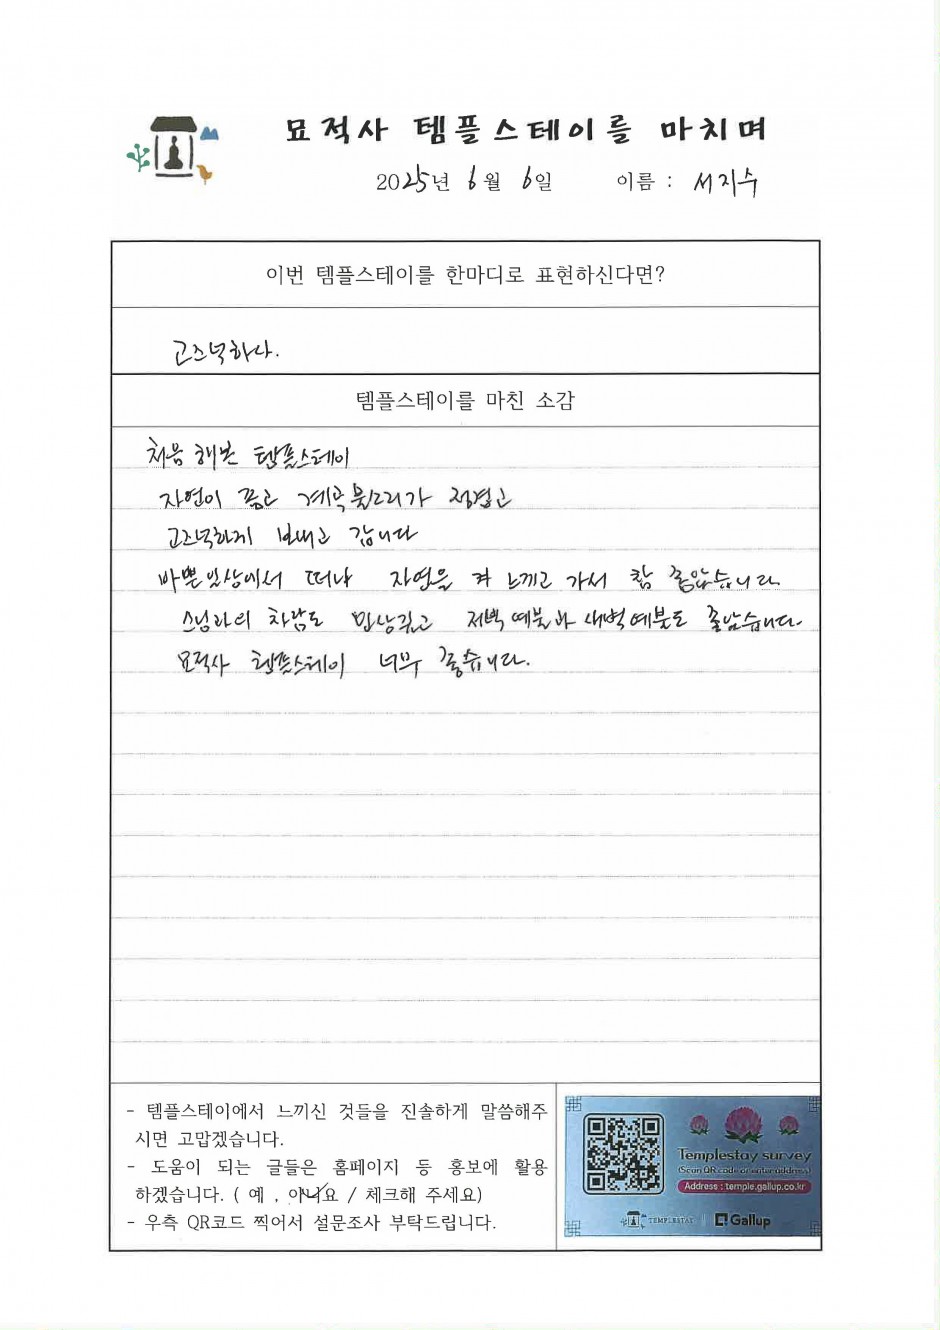 묘적사 템플스테이를 마치며
2025년 6월 6일 이름 : 서지수
이번 템플스테이를 한마디로 표현하신다면?
고즈넉하다.
템플스테이를 마친 소감
처음 해본 템플스테이
자연이 좋고 계곡물소리가 정겹고
고즈넉하게 보내고 갑니다
바쁜 일상에서 떠나 자연을 느끼고 가서 참 좋았습니다.
스님과의 차담도 인상깊고 저녁예불과 새벽예불도 좋았습니다.
묘적사 템플스테이 너무 좋습니다.
- 템플스테이에서 느끼신 것들을 진솔하게 말씀해주
시면 고맙겠습니다.
- 도움이 되는 글들은 홈페이지 등 홍보에 활용
하겠습니다. ( 예 , 아니요 / 체크해 주세요)
- 우측 QR코드 찍어서 설문조사 부탁드립니다.
Templestay survey
(Scan QR code or enter address)
Address : temple.gallup.co.kr
TEMPLESTAY | Gallup